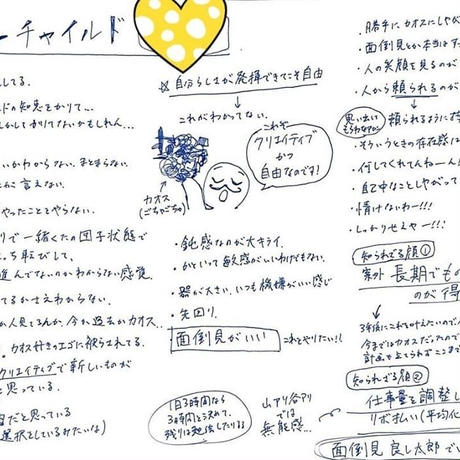 ーチャイルド
してる.
ドの知恵をかりて...
しかしてかりてないかもしれん...
いかわからない. まとまらない.
に言えない.
やったことをやらない.
リで一緒くたの団子状態で
っち転びして.
進んでないのかわからない感覚.
てるかさえわからない.
か人見てるんか. 今か過去かカオス...
. カオス好きのエゴに被られてる.
クリエイティブで新しいものが
と思っている.
習だと思っている
選択としているみたいな)
※自分らしさが発揮できてこそ自由
↓
これがわかってない.
これぞ
クリエイティブ
かつ
自由なのです!
カオス
(ごちゃごちゃ)
・鈍感なのが大キライ.
・かといって敏感がいいわけどもない.
・器が大きい. いつも機嫌がいい感じ
・先回り.
面倒見がいい これをやりたい!!
1日3時間なら
3時間と決めて.
残りは勉強したりする
山アリ谷アリ
では
無能感...
・勝手に. カオスにしやが
・面倒見とか本当はす
・人の笑顔を見るのが
・人から頼られるのが
思い出して
頼られるように
・そういうときの存在感に
・何してくれてんねーん!
・自己中なことしやがって
・情けないわー!!!
・しっかりせぇやー!!!
知られざる顔①
案外 長期でもの
のが得
3年後にこれを叶えたいので
今まではカオスだったの
計画を立てられずここまで
知られざる顔②
仕事量を調整し
リボ払い(平均化
面倒見 良し太郎でい